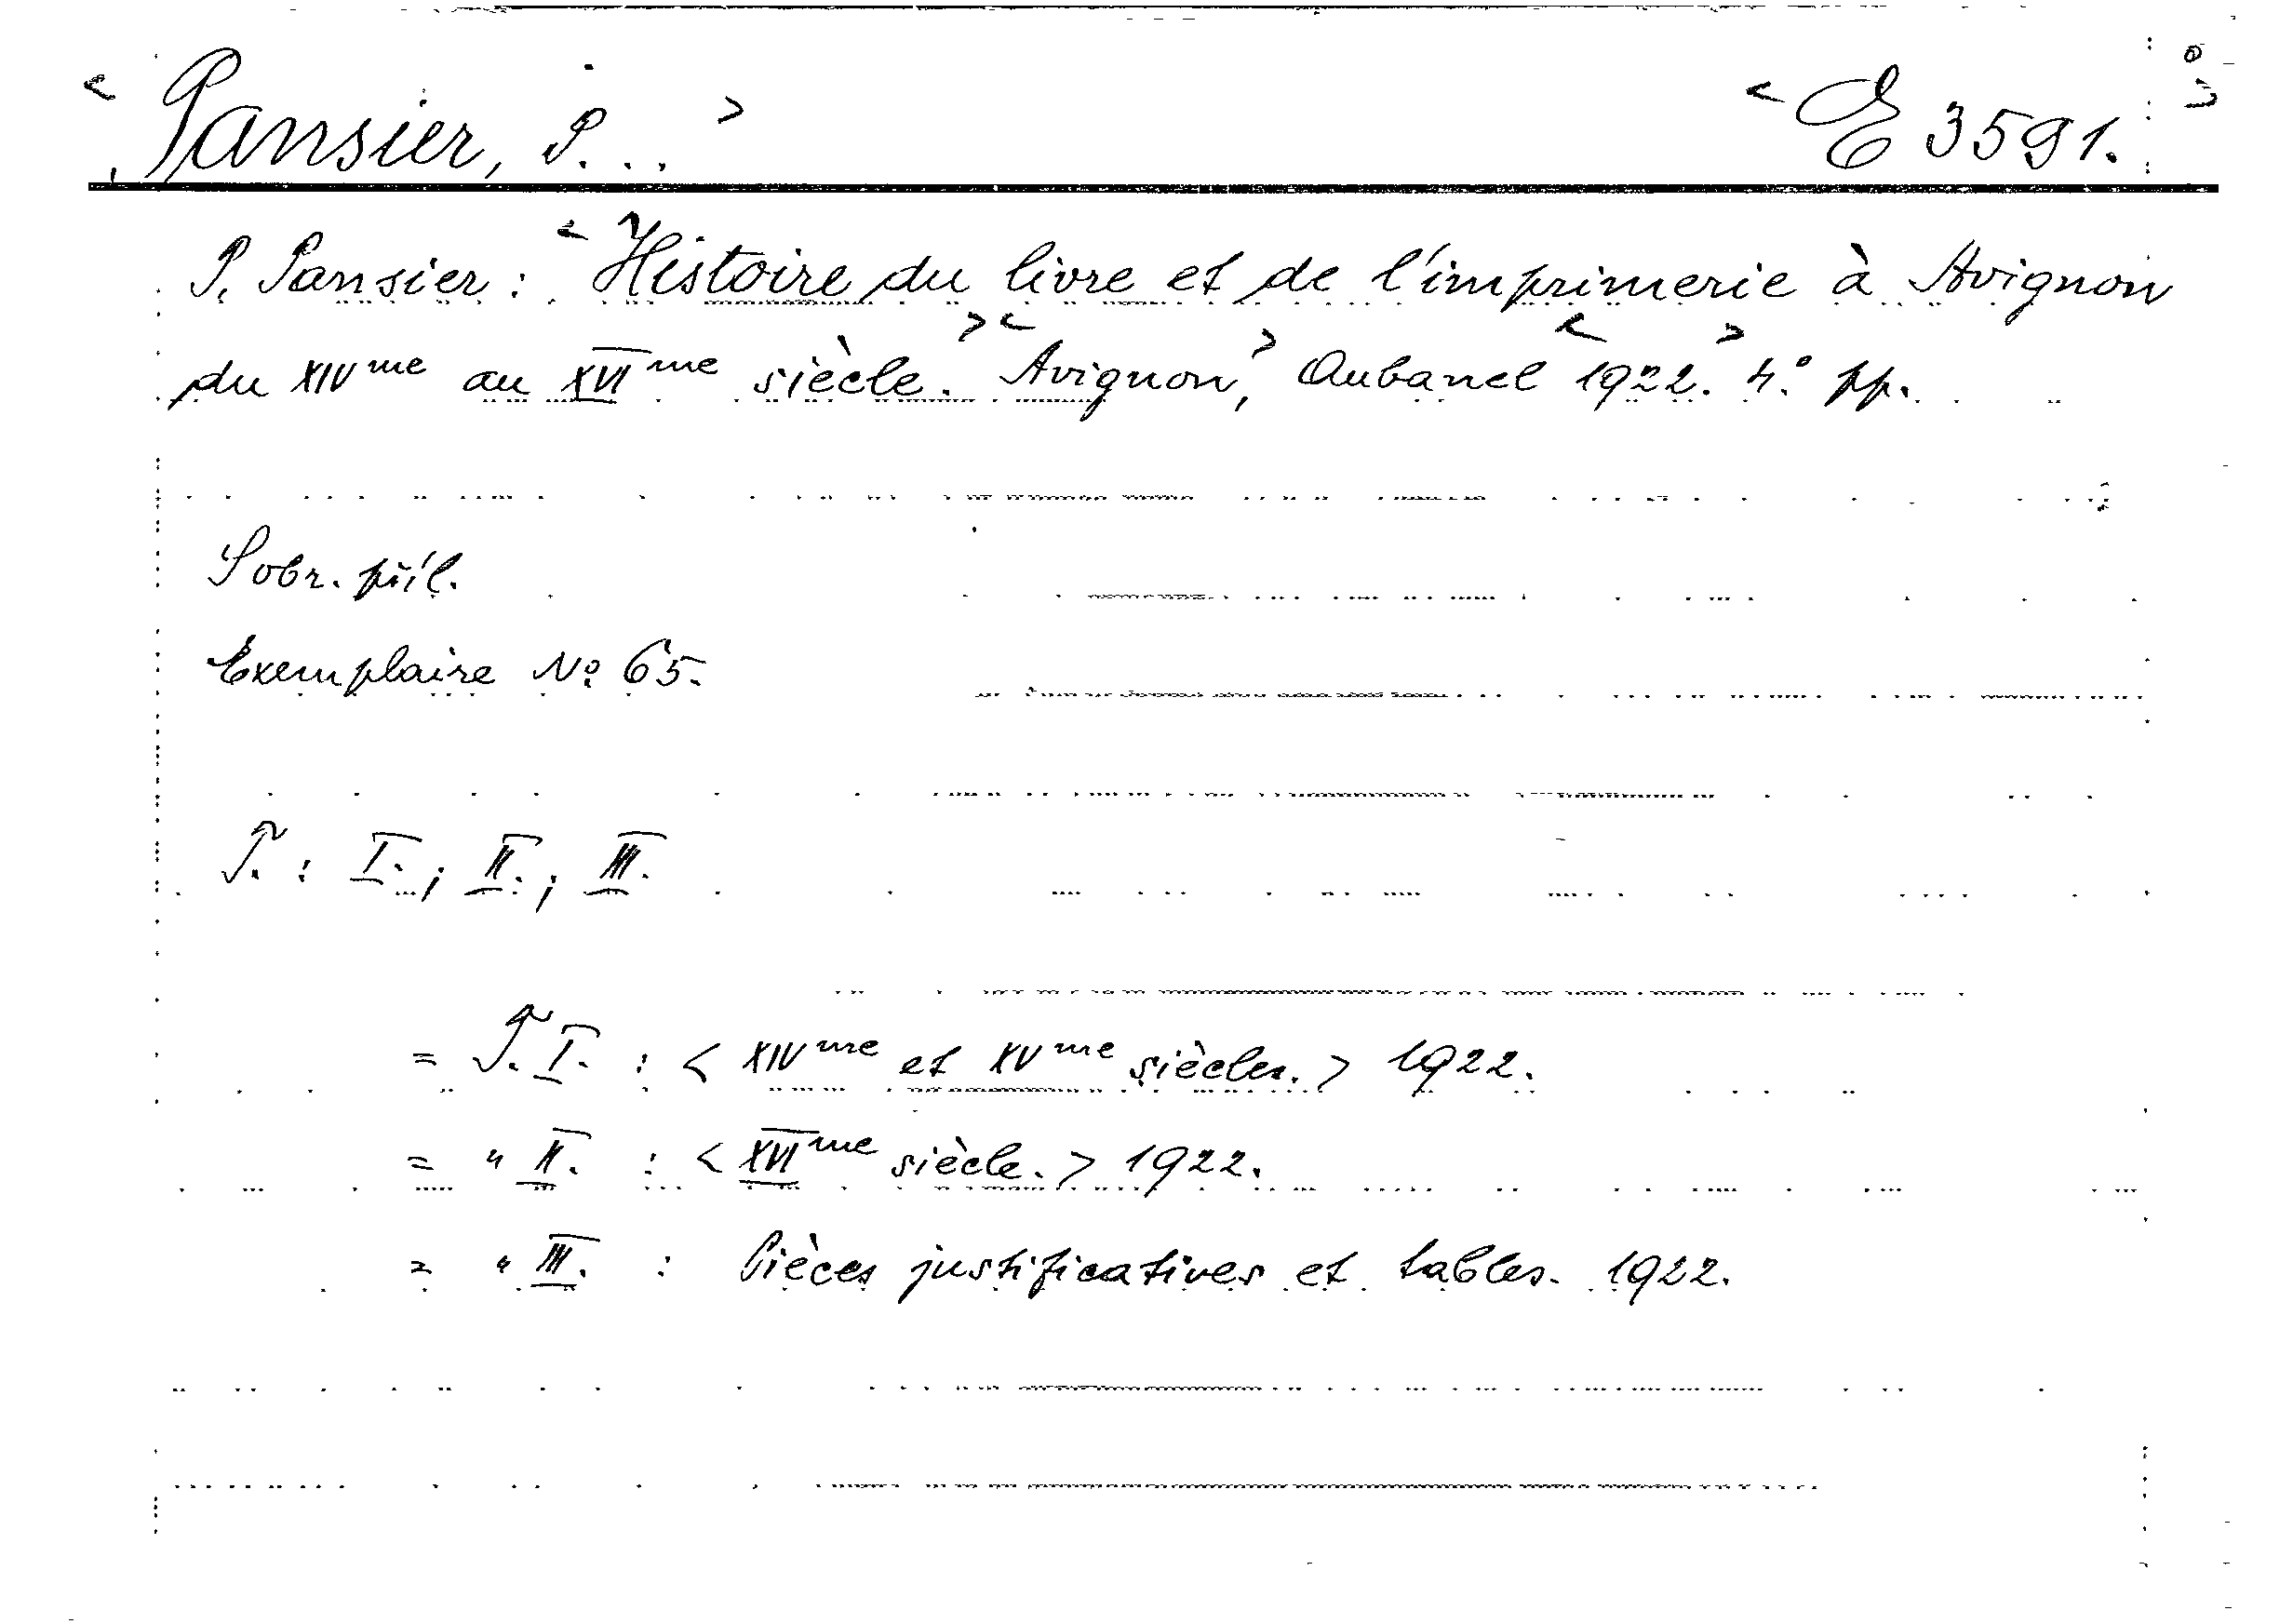 < Pansier, P... > < E 3591. >
P. Pansier: < Histoire du livre et de l'imprimerie à Avignon
du XIVme au XVIme siècle. > < Avignon, > Aubanel < 1922. > 4.° pp.
Sobr. příl.
Exemplaire No 65.
T. : I. ; II. ; III.
= T. I. : < XIVme et XVme siècles. > 1922.
= " II. : < XVIme siècle. > 1922.
= " III. : Pièces justificatives et tables. 1922.